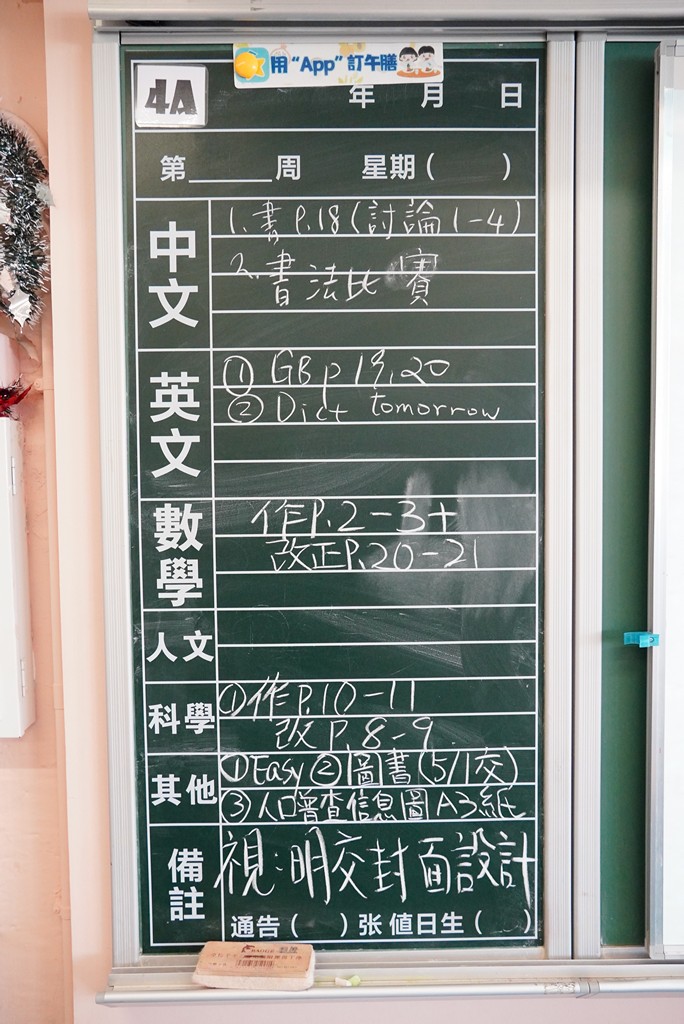 用 “App” 訂午膳
4A
年 月 日
第____周 星期( )
中文
1. 書 P.18 (討論 1-4)
2. 書法比賽
英文
① GB p 19, 20
② Dict tomorrow
數學
作P.2-3+
改正P.20-21
人文
科學
①作P.10-11
改 P.8-9
其他
①Easy ②圖書(5/1交)
③人口普查信息圖A3紙
備註
視:明交封面設計
通告( )张 值日生( )